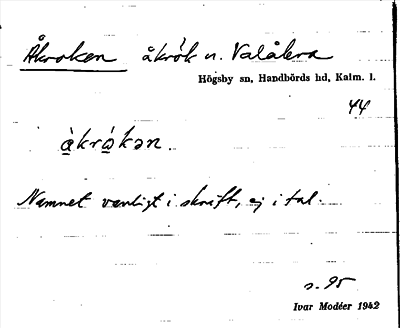 Åkroken åkrók n. Valåkra
Högsby sn, Handbörds hd, Kalm. l.
44
àkrókən.
Namnet vanligt i skrift, ej i tal.
s. 95
Ivar Modéer 1942